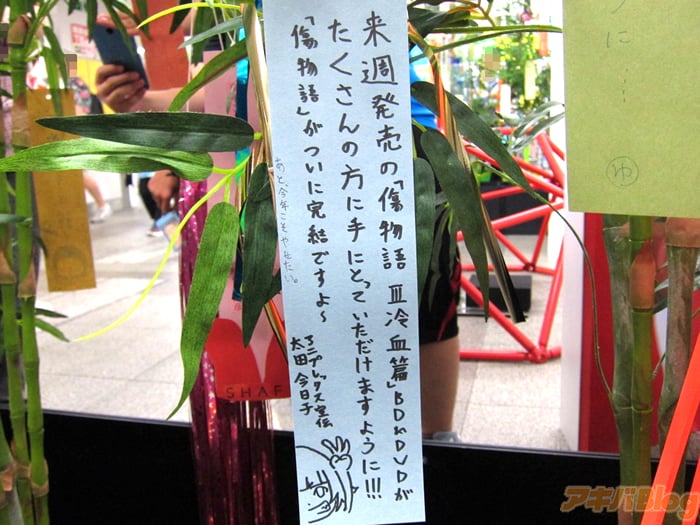 来週発売の「傷物語 Ⅲ冷血篇」BDとDVDが
たくさんの方に手にとっていただけますように!!!
「傷物語」がついに完結ですよ〜
あと、今年こそやせたい。
アニプレックス宣伝
太田 今日子
うに…
ゆ
SHAF
アキバBlog